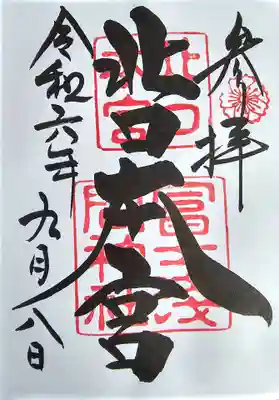 参拝
北口本宮
北口
本宮
冨士浅
間神社
令和六年九月八日